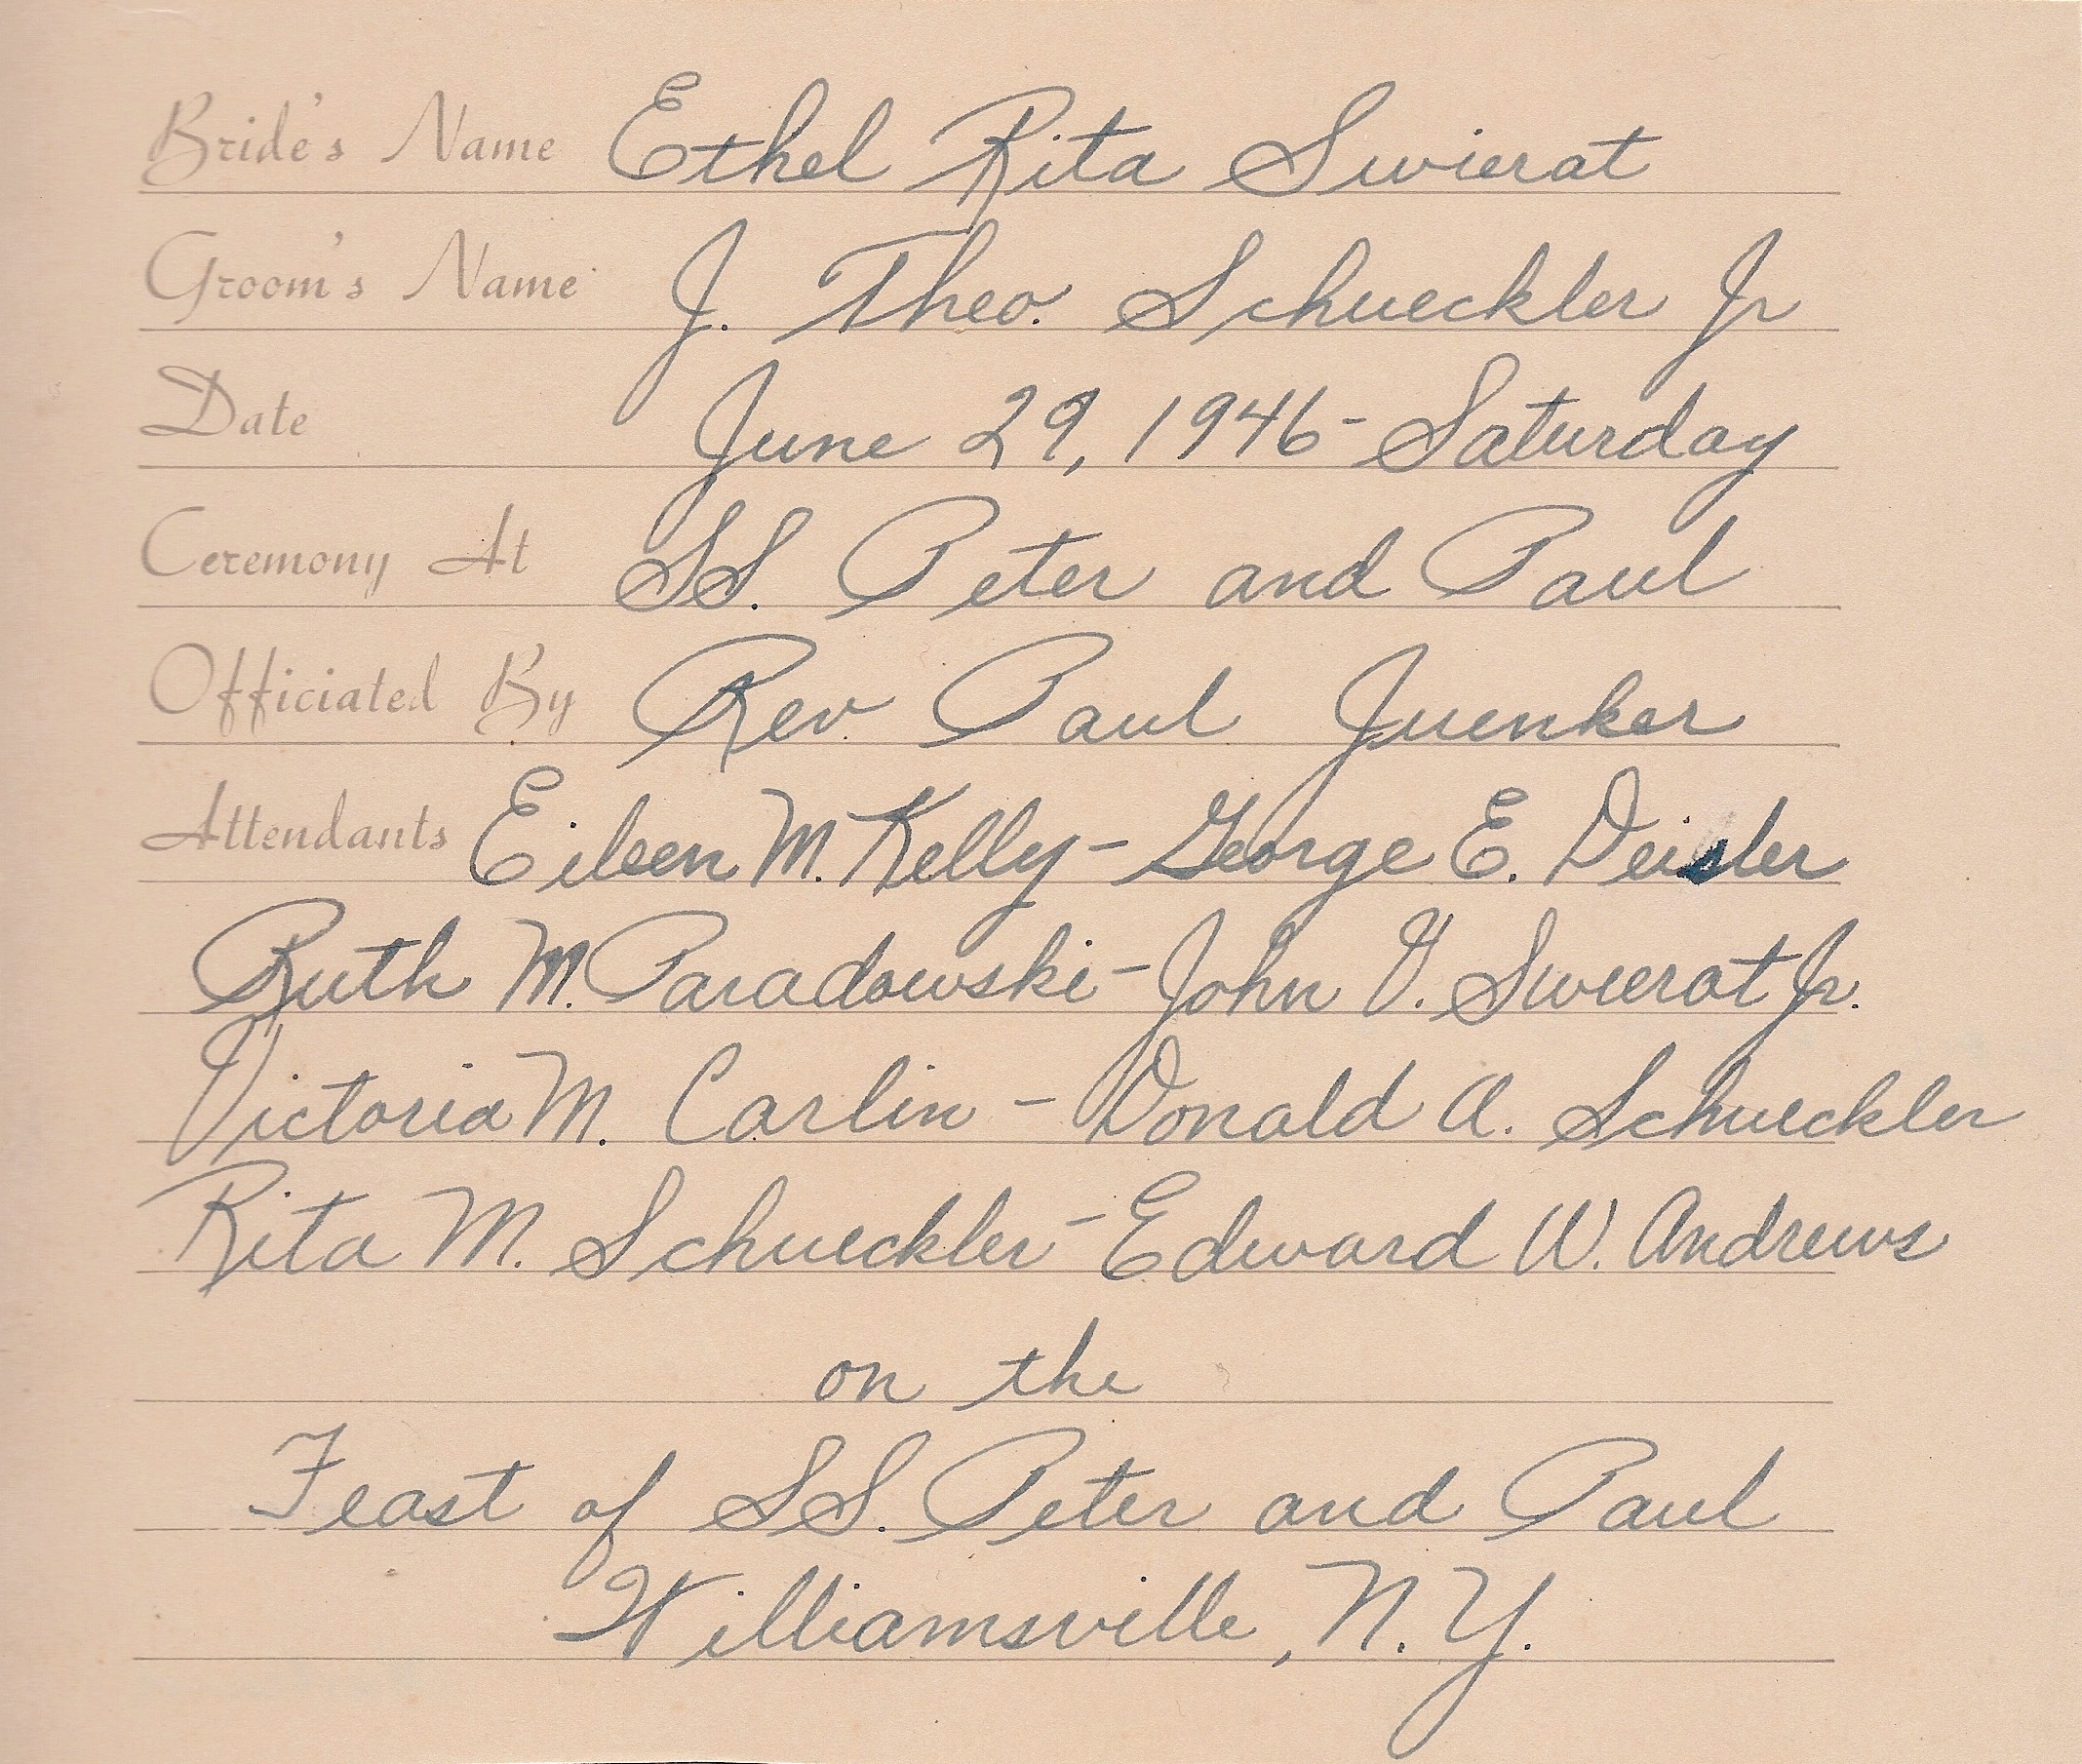 Bride's Name Ethel Rita Swierat
Groom's Name J. Theo. Schueckler Jr
Date June 29, 1946 - Saturday
Ceremony At SS. Peter and Paul
Officiated By Rev. Paul Juenker
Attendants Eileen M. Kelly - George E. Deisler
Ruth M. Paradowski - John V. Swierat Jr.
Victoria M. Carlin - Donald A. Schueckler
Rita M. Schueckler - Edward W. Andrews
on the
Feast of SS. Peter and Paul
Williamsville, N.Y.